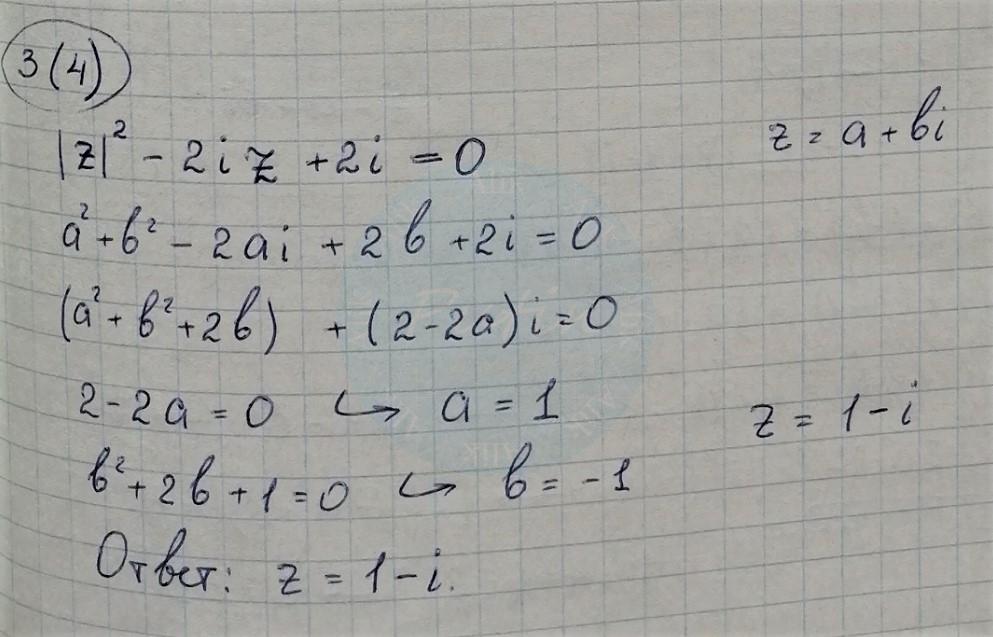 3(4)
|z|² - 2iz + 2i = 0
z = a + bi
a² + b² - 2ai + 2b + 2i = 0
(a² + b² + 2b) + (2 - 2a)i = 0
2 - 2a = 0 ↪ a = 1
z = 1 - i
b² + 2b + 1 = 0 ↪ b = -1
Ответ: z = 1 - i.